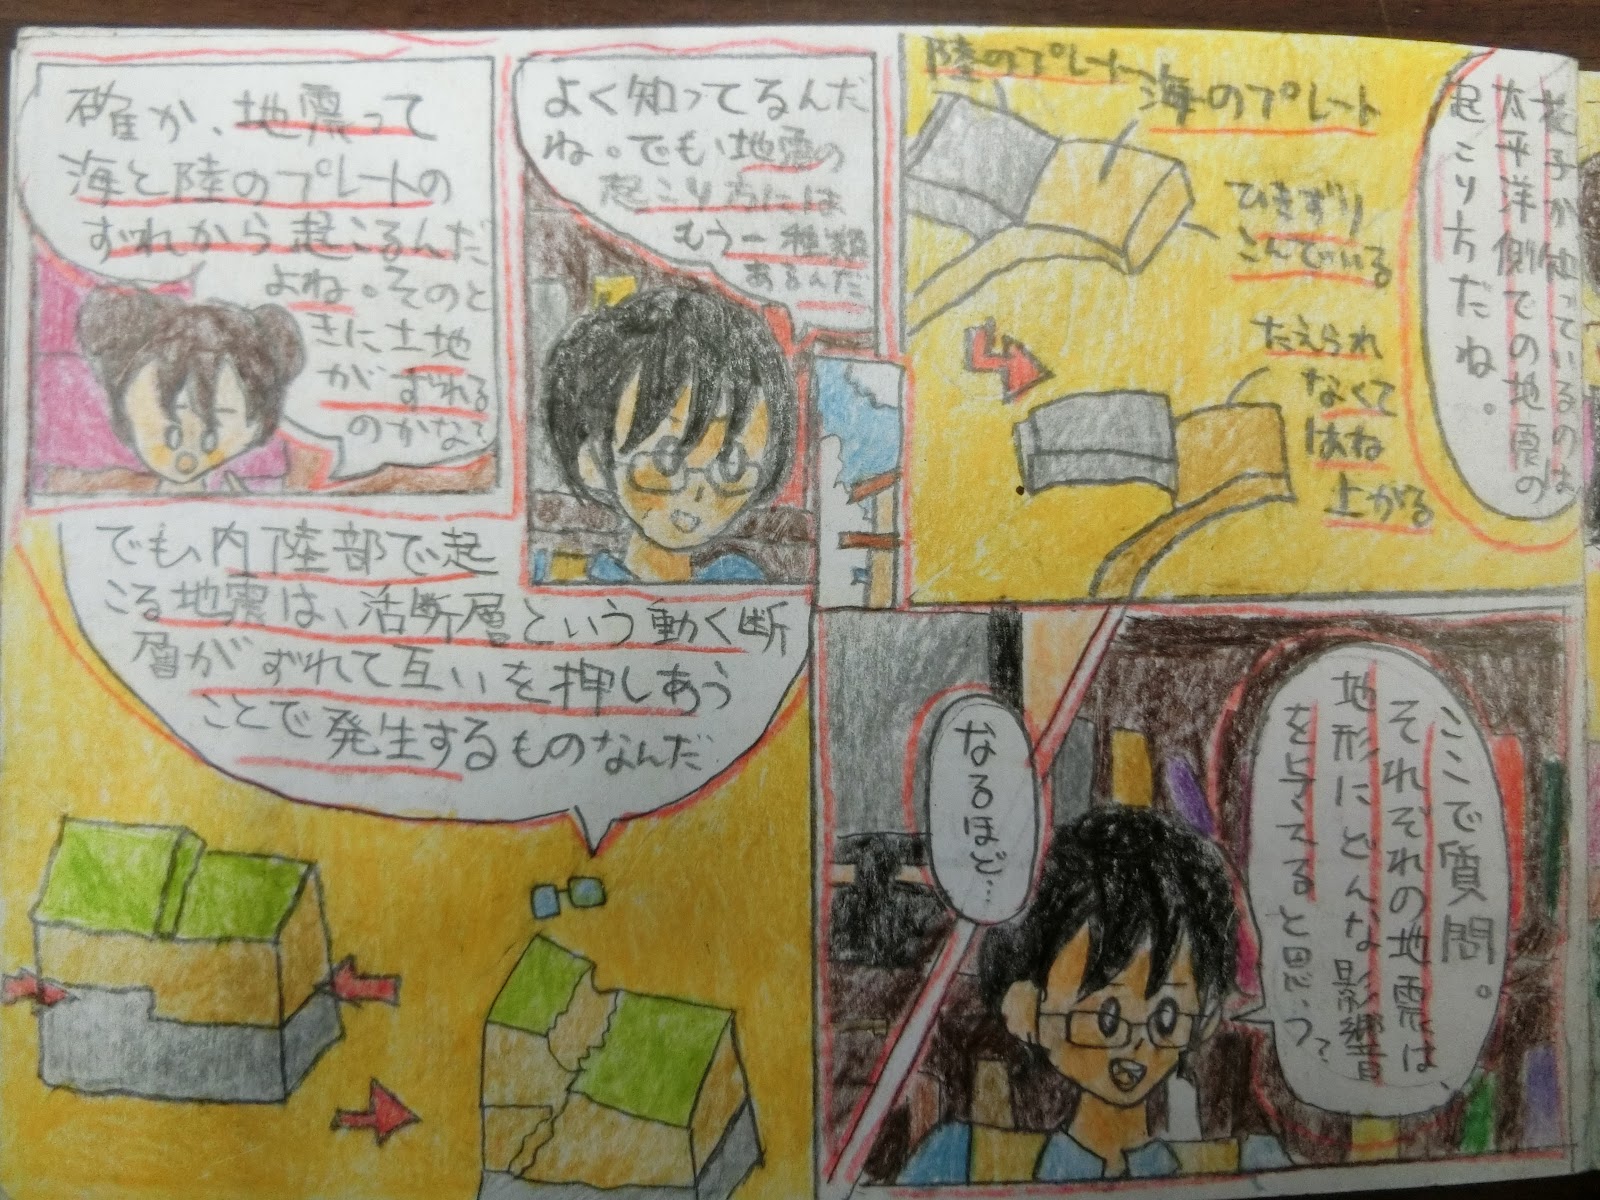 確か、地震って
海と陸のプレートの
ずれから起こるんだ
よね。そのと
きに土地
がずれる
のかな?
よく知ってるんだ
ね。でも、地震の
起こり方には
もう一種類
あるんだ
陸のプレート
海のプレート
ひきずり
こんでいる
たえられ
なくて
はね
上がる
花子が知っているのは
太平洋側での地震の
起こり方だね。
でも、内陸部で起
こる地震は、活断層という動く断
層がずれて互いを押しあう
ことで発生するものなんだ
ここで質問。
それぞれの地震は、
地形にどんな影響
を与えると思う?
なるほど…